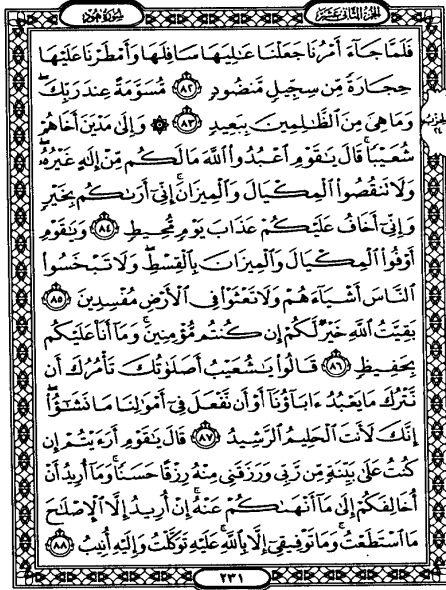 سُورَةُ هُودٍ
الجزء الثاني عشر
فَلَمَّا جَآءَ أَمْرُنَا جَعَلْنَا عَٰلِيَهَا سَافِلَهَا وَأَمْطَرْنَا عَلَيْهَا
حِجَارَةً مِّن سِجِّيلٍ مَّنضُودٍ ٨٢ مُّسَوَّمَةً عِندَ رَبِّكَۖ
وَمَا هِيَ مِنَ ٱلظَّٰلِمِينَ بِبَعِيدٍ ٨٣ ۞ وَإِلَىٰ مَدْيَنَ أَخَاهُمْ
شُعَيْبًاۚ قَالَ يَٰقَوْمِ ٱعْبُدُواْ ٱللَّهَ مَالَكُم مِّنْ إِلَٰهٍ غَيْرُهُۥۖ
وَلَا تَنقُصُواْ ٱلْمِكْيَالَ وَٱلْمِيزَانَۚ إِنِّيٓ أَرَىٰكُم بِخَيْرٍ
وَإِنِّيٓ أَخَافُ عَلَيْكُمْ عَذَابَ يَوْمٍ مُّحِيطٍ ٨٤ وَيَٰقَوْمِ
أَوْفُواْ ٱلْمِكْيَالَ وَٱلْمِيزَانَ بِٱلْقِسْطِۖ وَلَا تَبْخَسُواْ
ٱلنَّاسَ أَشْيَآءَهُمْ وَلَا تَعْثَوْاْ فِي ٱلْأَرْضِ مُفْسِدِينَ ٨٥
بَقِيَّتُ ٱللَّهِ خَيْرٌ لَّكُمْ إِن كُنتُم مُّؤْمِنِينَۚ وَمَآ أَنَا۠ عَلَيْكُم
بِحَفِيظٍ ٨٦ قَالُواْ يَٰشُعَيْبُ أَصَلَوٰتُكَ تَأْمُرُكَ أَن
نَّتْرُكَ مَا يَعْبُدُ ءَابَآؤُنَآ أَوْ أَن نَّفْعَلَ فِيٓ أَمْوَٰلِنَا مَا نَشَٰٓؤُاْۖ
إِنَّكَ لَأَنتَ ٱلْحَلِيمُ ٱلرَّشِيدُ ٨٧ قَالَ يَٰقَوْمِ أَرَءَيْتُمْ إِن
كُنتُ عَلَىٰ بَيِّنَةٍ مِّن رَّبِّي وَرَزَقَنِي مِنْهُ رِزْقًا حَسَنًاۚ وَمَآ أُرِيدُ أَنْ
أُخَالِفَكُمْ إِلَىٰ مَآ أَنْهَىٰكُمْ عَنْهُۚ إِنْ أُرِيدُ إِلَّا ٱلْإِصْلَٰحَ
مَا ٱسْتَطَعْتُۚ وَمَا تَوْفِيقِيٓ إِلَّا بِٱللَّهِۚ عَلَيْهِ تَوَكَّلْتُ وَإِلَيْهِ أُنِيبُ ٨٨
٢٣١